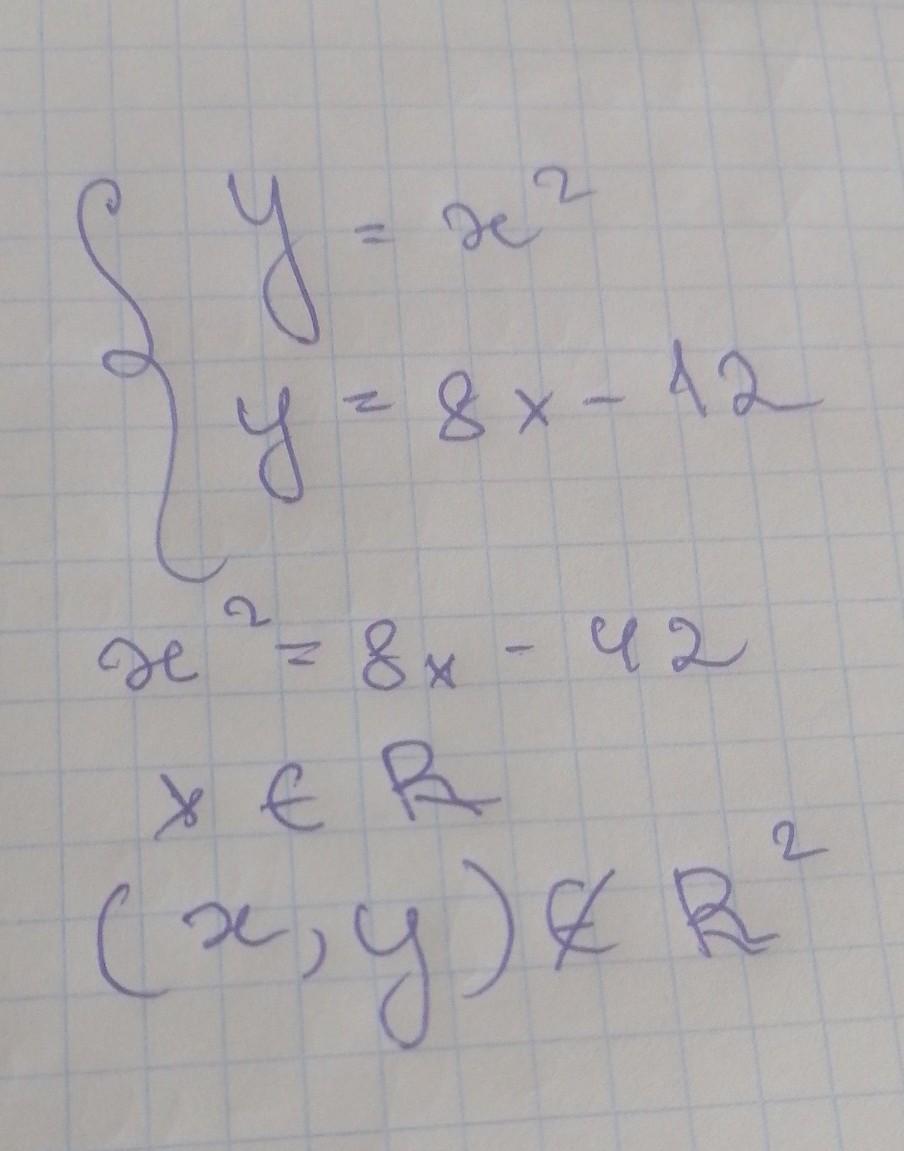 y = x²
y = 8x - 12
x² = 8x - 42
x ∈ R
(x, y) ∉ R²